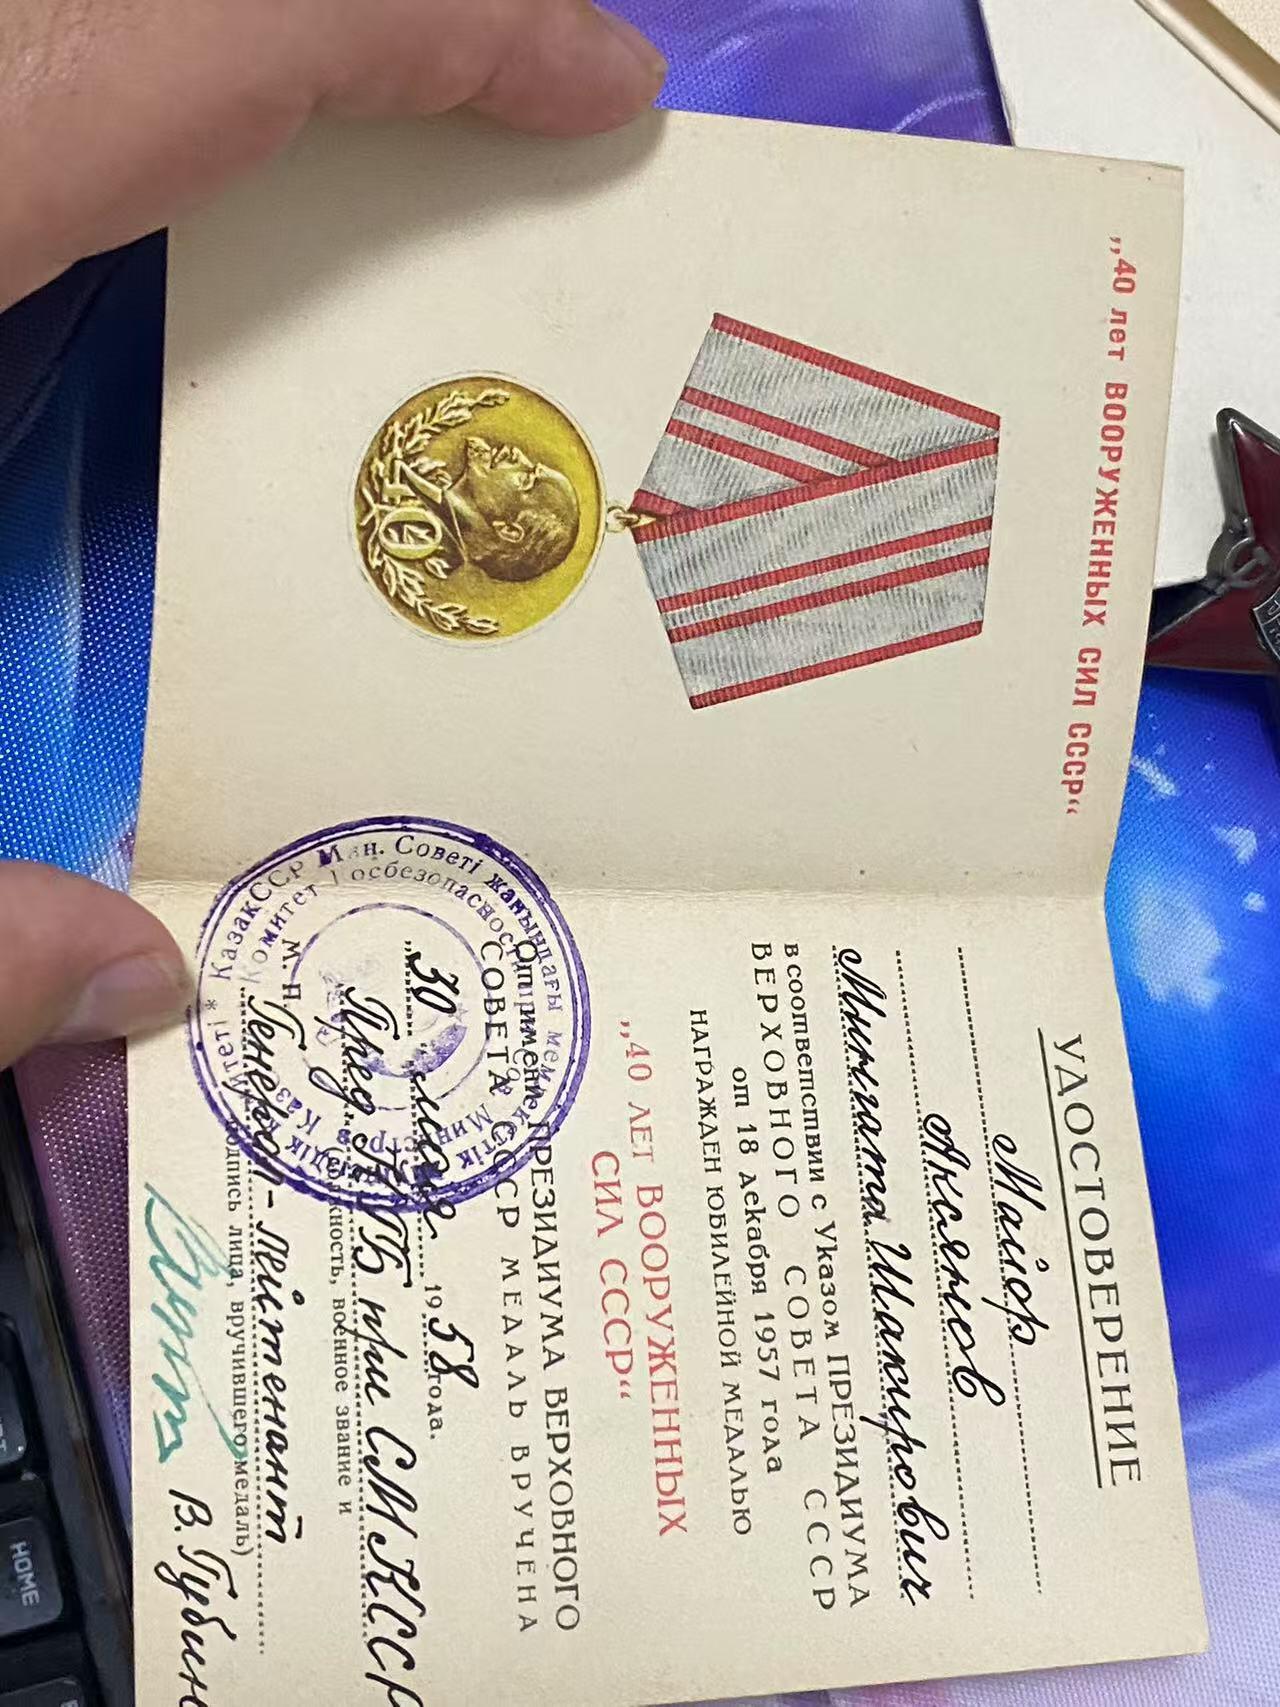 „40 лет ВООРУЖЕННЫХ СИЛ СССР“
УДОСТОВЕРЕНИЕ
Майор
Акслянов
Мингата Шакирович
в соответствии с Указом ПРЕЗИДИУМА
ВЕРХОВНОГО СОВЕТА СССР
от 18 декабря 1957 года
НАГРАЖДЕН ЮБИЛЕЙНОЙ МЕДАЛЬЮ
„40 ЛЕТ ВООРУЖЕННЫХ
СИЛ СССР“
От имени ПРЕЗИДИУМА ВЕРХОВНОГО
СОВЕТА СССР МЕДАЛЬ ВРУЧЕНА
„30“ мая 1958 года.
Пред. КГБ при СМ КССР
военное звание и
М. П. Генерал-лейтенант
подпись лица, вручившего медаль)
В. Губин
КазакССР Мин. Советi жанындағы мем
Комитет Госбезопасности
HOME